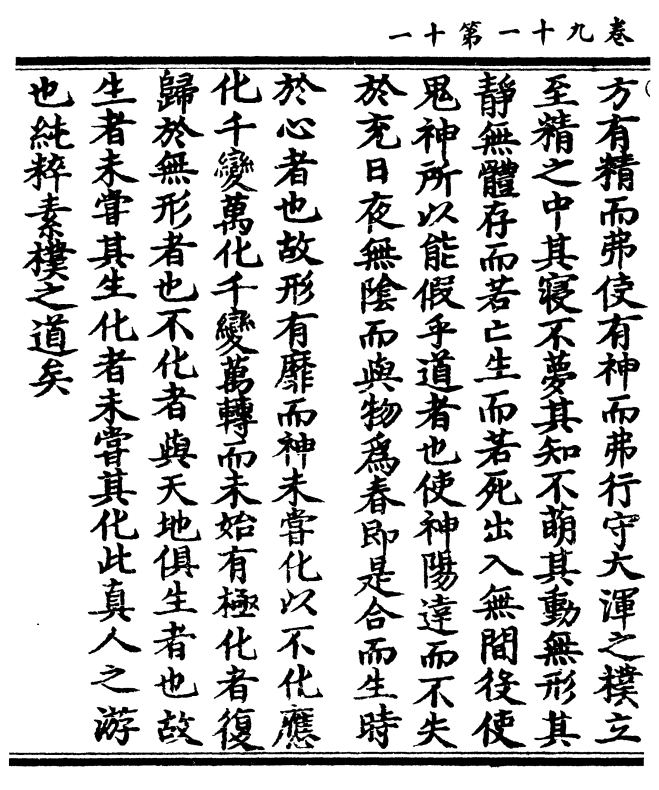 卷九十一第十一
方有精而弗使有神而弗行守大渾之樸立
至精之中其寢不夢其知不萌其動無形其
靜無體存而若亡生而若死出入無間役使
鬼神所以能假乎道者也使神陽達而不失
於充日夜無陰而與物為春即是合而生時
於心者也故形有靡而神未嘗化以不化應
化千變萬化千變萬轉而未始有極化者復
歸於無形者也不化者與天地俱生者也故
生者未嘗其生化者未嘗其化此真人之游
也純粹素樸之道矣